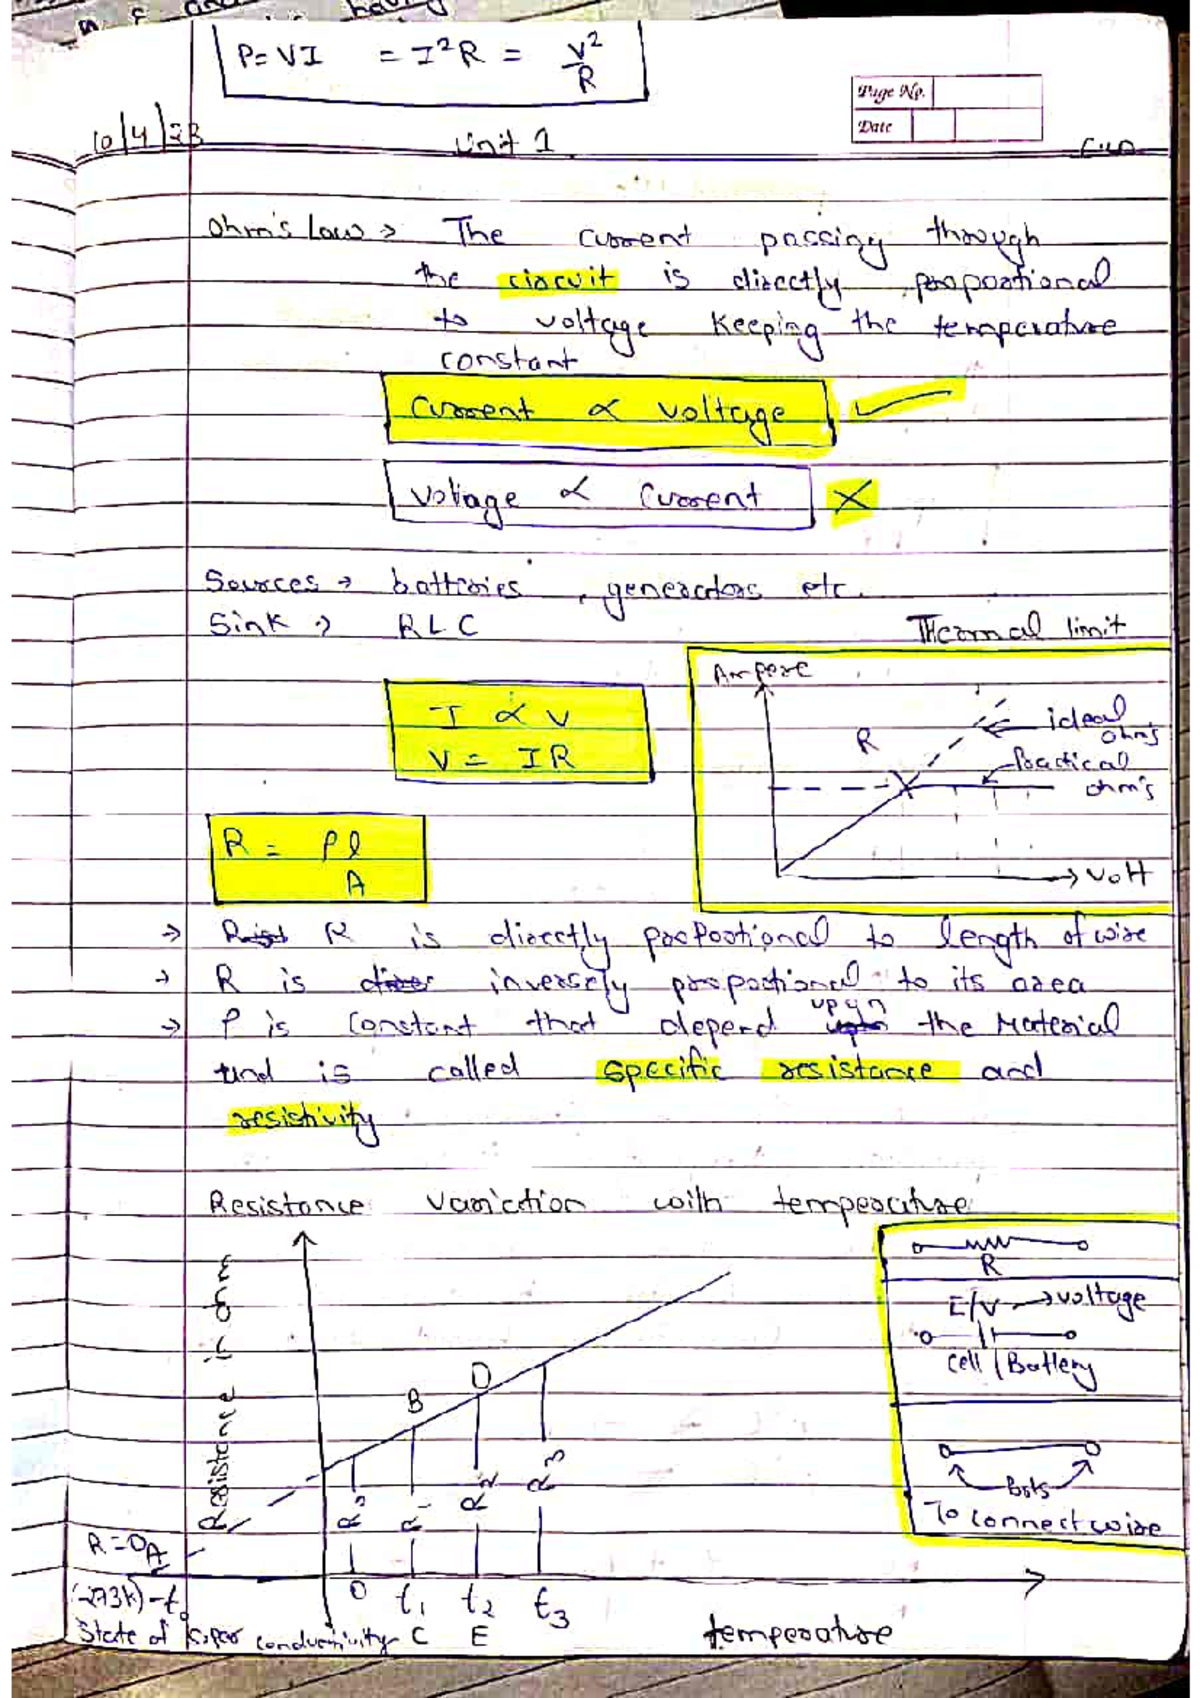 P= VI = I²R = V²/R
Page No.
Date
10/4/23 Unit 1
Ohm's Law → The current passing through
the circuit is directly proportional
to voltage keeping the temperature
constant
Current ∝ voltage ✓
Voltage ∝ Current ✗
Sources → batteries , generators etc.
Sink → RLC
Thermal limit
Ampere
R
ideal ohm's
Practical ohm's
→ volt
I ∝ V
V = IR
R = ρl
A
→ R is directly proportional to length of wire
→ R is inversely proportional to its area
→ ρ is constant that depend upon the Material
and is called specific resistance and
resistivity
Resistance Variation with temperature
Resistance in ohm
B
D
R₁
R₂
R₃
R=0
A
(-273k) -t₀
0 t₁ t₂ t₃
State of super conductivity C E
temperature
R
E/V → voltage
Cell / Battery
To connect wire